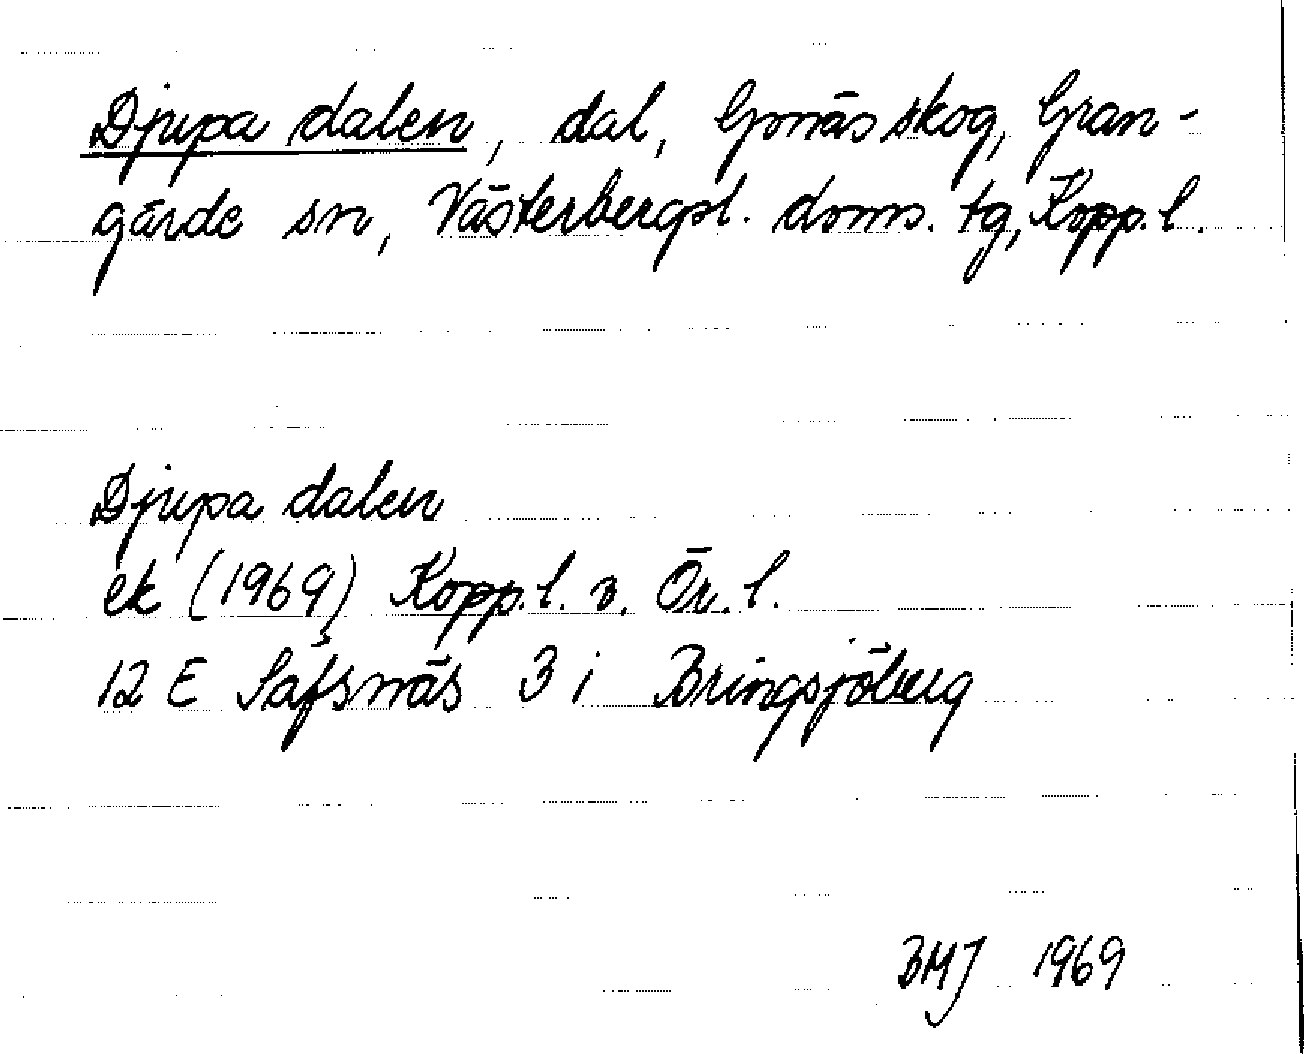 Djupa dalen, dal, Gonäs skog, Gran-
gärde sn, Västerbergsl. doms. tg, Kopp. l.
Djupa dalen
ek (1969) Kopp. l. o. Ör. l.
12 E Säfsnäs 3 i Bringsjöberg
BMJ 1969